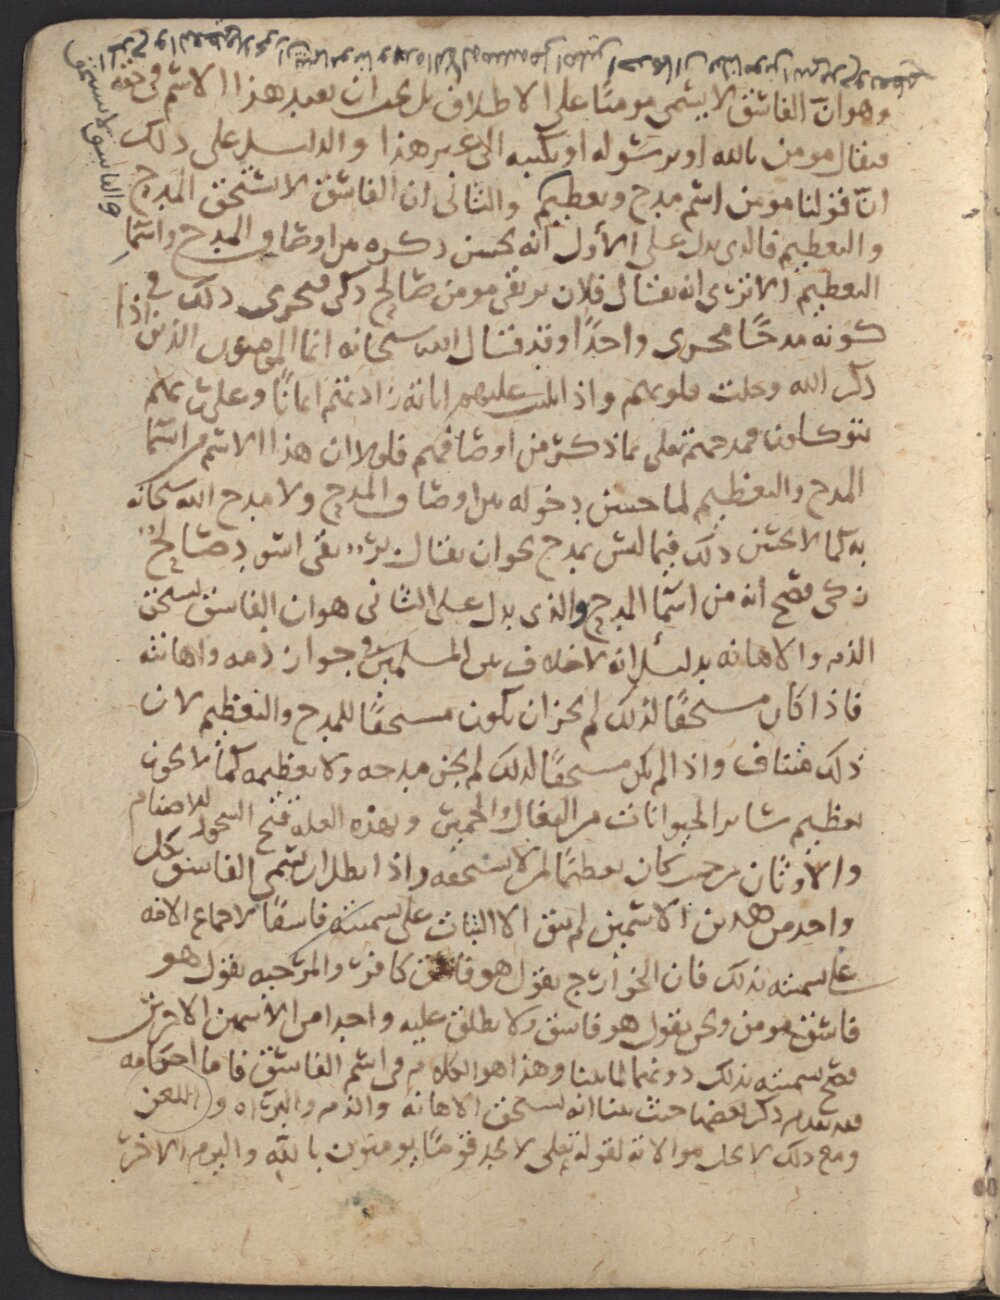 وهو ان الفاسق لا يسمى مومنا على الاطلاق بل يجب ان يقيد هذا الاسم في حقه
فيقال مومن بالله او برسوله او بكتبه الى غير هذا والدليل على ذلك
ان قولنا مومن اسم مدح وتعظيم والثاني ان الفاسق لا يستحق المدح
والتعظيم فالذي يدل على الأول انه يحسن ذكره من اوصاف المدح واسما
التعظيم الا ترى انه يقال فلان بر تقي مومن صالح زكي فيجري ذلك في
كونه مدحًا مجرى واحدًا وقد قال الله سبحانه انما المومنون الذين اذا
ذكر الله وجلت قلوبهم واذا تليت عليهم اياته زادتهم ايمانًا وعلى ربهم
يتوكلون فمدحهم تعلى بما ذكر من اوصافهم فلولا ان هذا الاسم من اسما
المدح والتعظيم لما حسن دخوله بين اوصاف المدح ولا مدح الله سبحانه
به كما لا يحسن ذلك فيما ليس بمدح نحو ان يقال بر تقي اسود صالح
زكي فصح انه من اسما المدح والذي يدل على الثاني هو ان الفاسق يستحق
الذم والاهانه بدليل انه لا خلاف بين المسلمين في جواز ذمه واهانته
فاذا كان مستحقًا لذلك لم يجز ان يكون مستحقًا للمدح والتعظيم لان
ذلك متناف واذا لم يكن مستحقًا لذلك لم يجز مدحه ولا تعظيمه كما لا يجوز
تعظيم سائر الحيوانات من البغال والحمير وبهذه العلة قبح السجود للاصنام
والأوثان من حيث كان تعظيمًا لمن لا يستحقه واذا بطل ان يسمى الفاسق بكل
واحد من هذين الاسمين لم يبق الا الثبات على تسميته فاسقًا لاجماع الامه
على تسميته بذلك فان الخوارج تقول هو فاسق كافر والمرجيه تقول هو
فاسق مومن ونحن نقول هو فاسق ولا نطلق عليه واحدا من الاسمين الاخرين
فصح تسميته بذلك دونهما لما بينا وهذا هو الكلام في اسم الفاسق فاما احكامه
فقد تقدم ذكر بعضها حيث بينا انه يستحق الاهانة والذم والبراه واللعن
ومع ذلك لا تحل موالاته لقوله تعلى لا تجد قومًا يومنون بالله واليوم الاخر